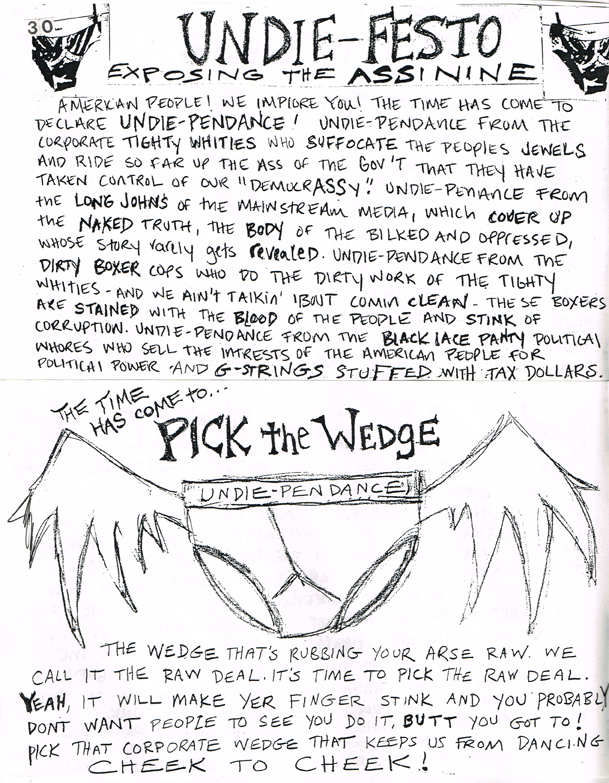 30-
UNDIE-FESTO
EXPOSING THE ASSININE
AMERICAN PEOPLE! WE IMPLORE YOU! THE TIME HAS COME TO
DECLARE UNDIE-PENDANCE! UNDIE-PENDANCE FROM THE
CORPORATE TIGHTY WHITIES WHO SUFFOCATE THE PEOPLES JEWELS
AND RIDE SO FAR UP THE ASS OF THE GOV'T THAT THEY HAVE
TAKEN CONTROL OF OUR "DEMOCRASSY". UNDIE-PENDANCE FROM
the LONG JOHNS OF THE MAINSTREAM MEDIA, WHICH COVER UP
the NAKED TRUTH, THE BODY OF THE BILKED AND OPPRESSED,
WHOSE STORY rarely gets revealed. UNDIE-PENDANCE FROM THE
DIRTY BOXER COPS WHO DO THE DIRTY WORK OF THE TIGHTY
WHITIES - AND WE AIN'T TALKIN' 'BOUT COMIN CLEAN - THESE BOXERS
ARE STAINED WITH THE BLOOD OF THE PEOPLE AND STINK OF
CORRUPTION. UNDIE-PENDANCE FROM THE BLACK LACE PANTY POLITICAL
WHORES WHO SELL THE INTRESTS OF THE AMERICAN PEOPLE FOR
POLITICAL POWER AND G-STRINGS STUFFED WITH TAX DOLLARS.
THE TIME
HAS COME TO...
PICK the WEDGE
UNDIE-PENDANCE
THE WEDGE THAT'S RUBBING YOUR ARSE RAW. WE
CALL IT THE RAW DEAL. IT'S TIME TO PICK THE RAW DEAL.
YEAH, IT WILL MAKE YER FINGER STINK AND YOU PROBABLY
DONT WANT PEOPLE TO SEE YOU DO IT, BUTT YOU GOT TO!
PICK THAT CORPORATE WEDGE THAT KEEPS US FROM DANCING
CHEEK TO CHEEK!